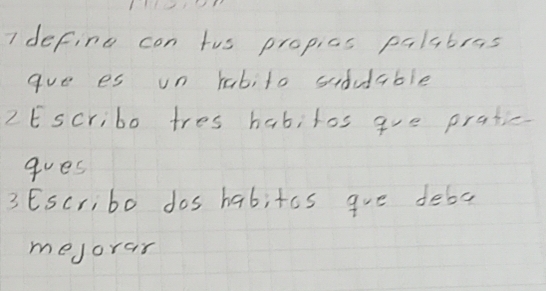 1 define con tus propias palabras
que es un habito saludable
2 Escribo tres habitos que pratic-
ques
3 Escribo dos habitos que deba
mejorar